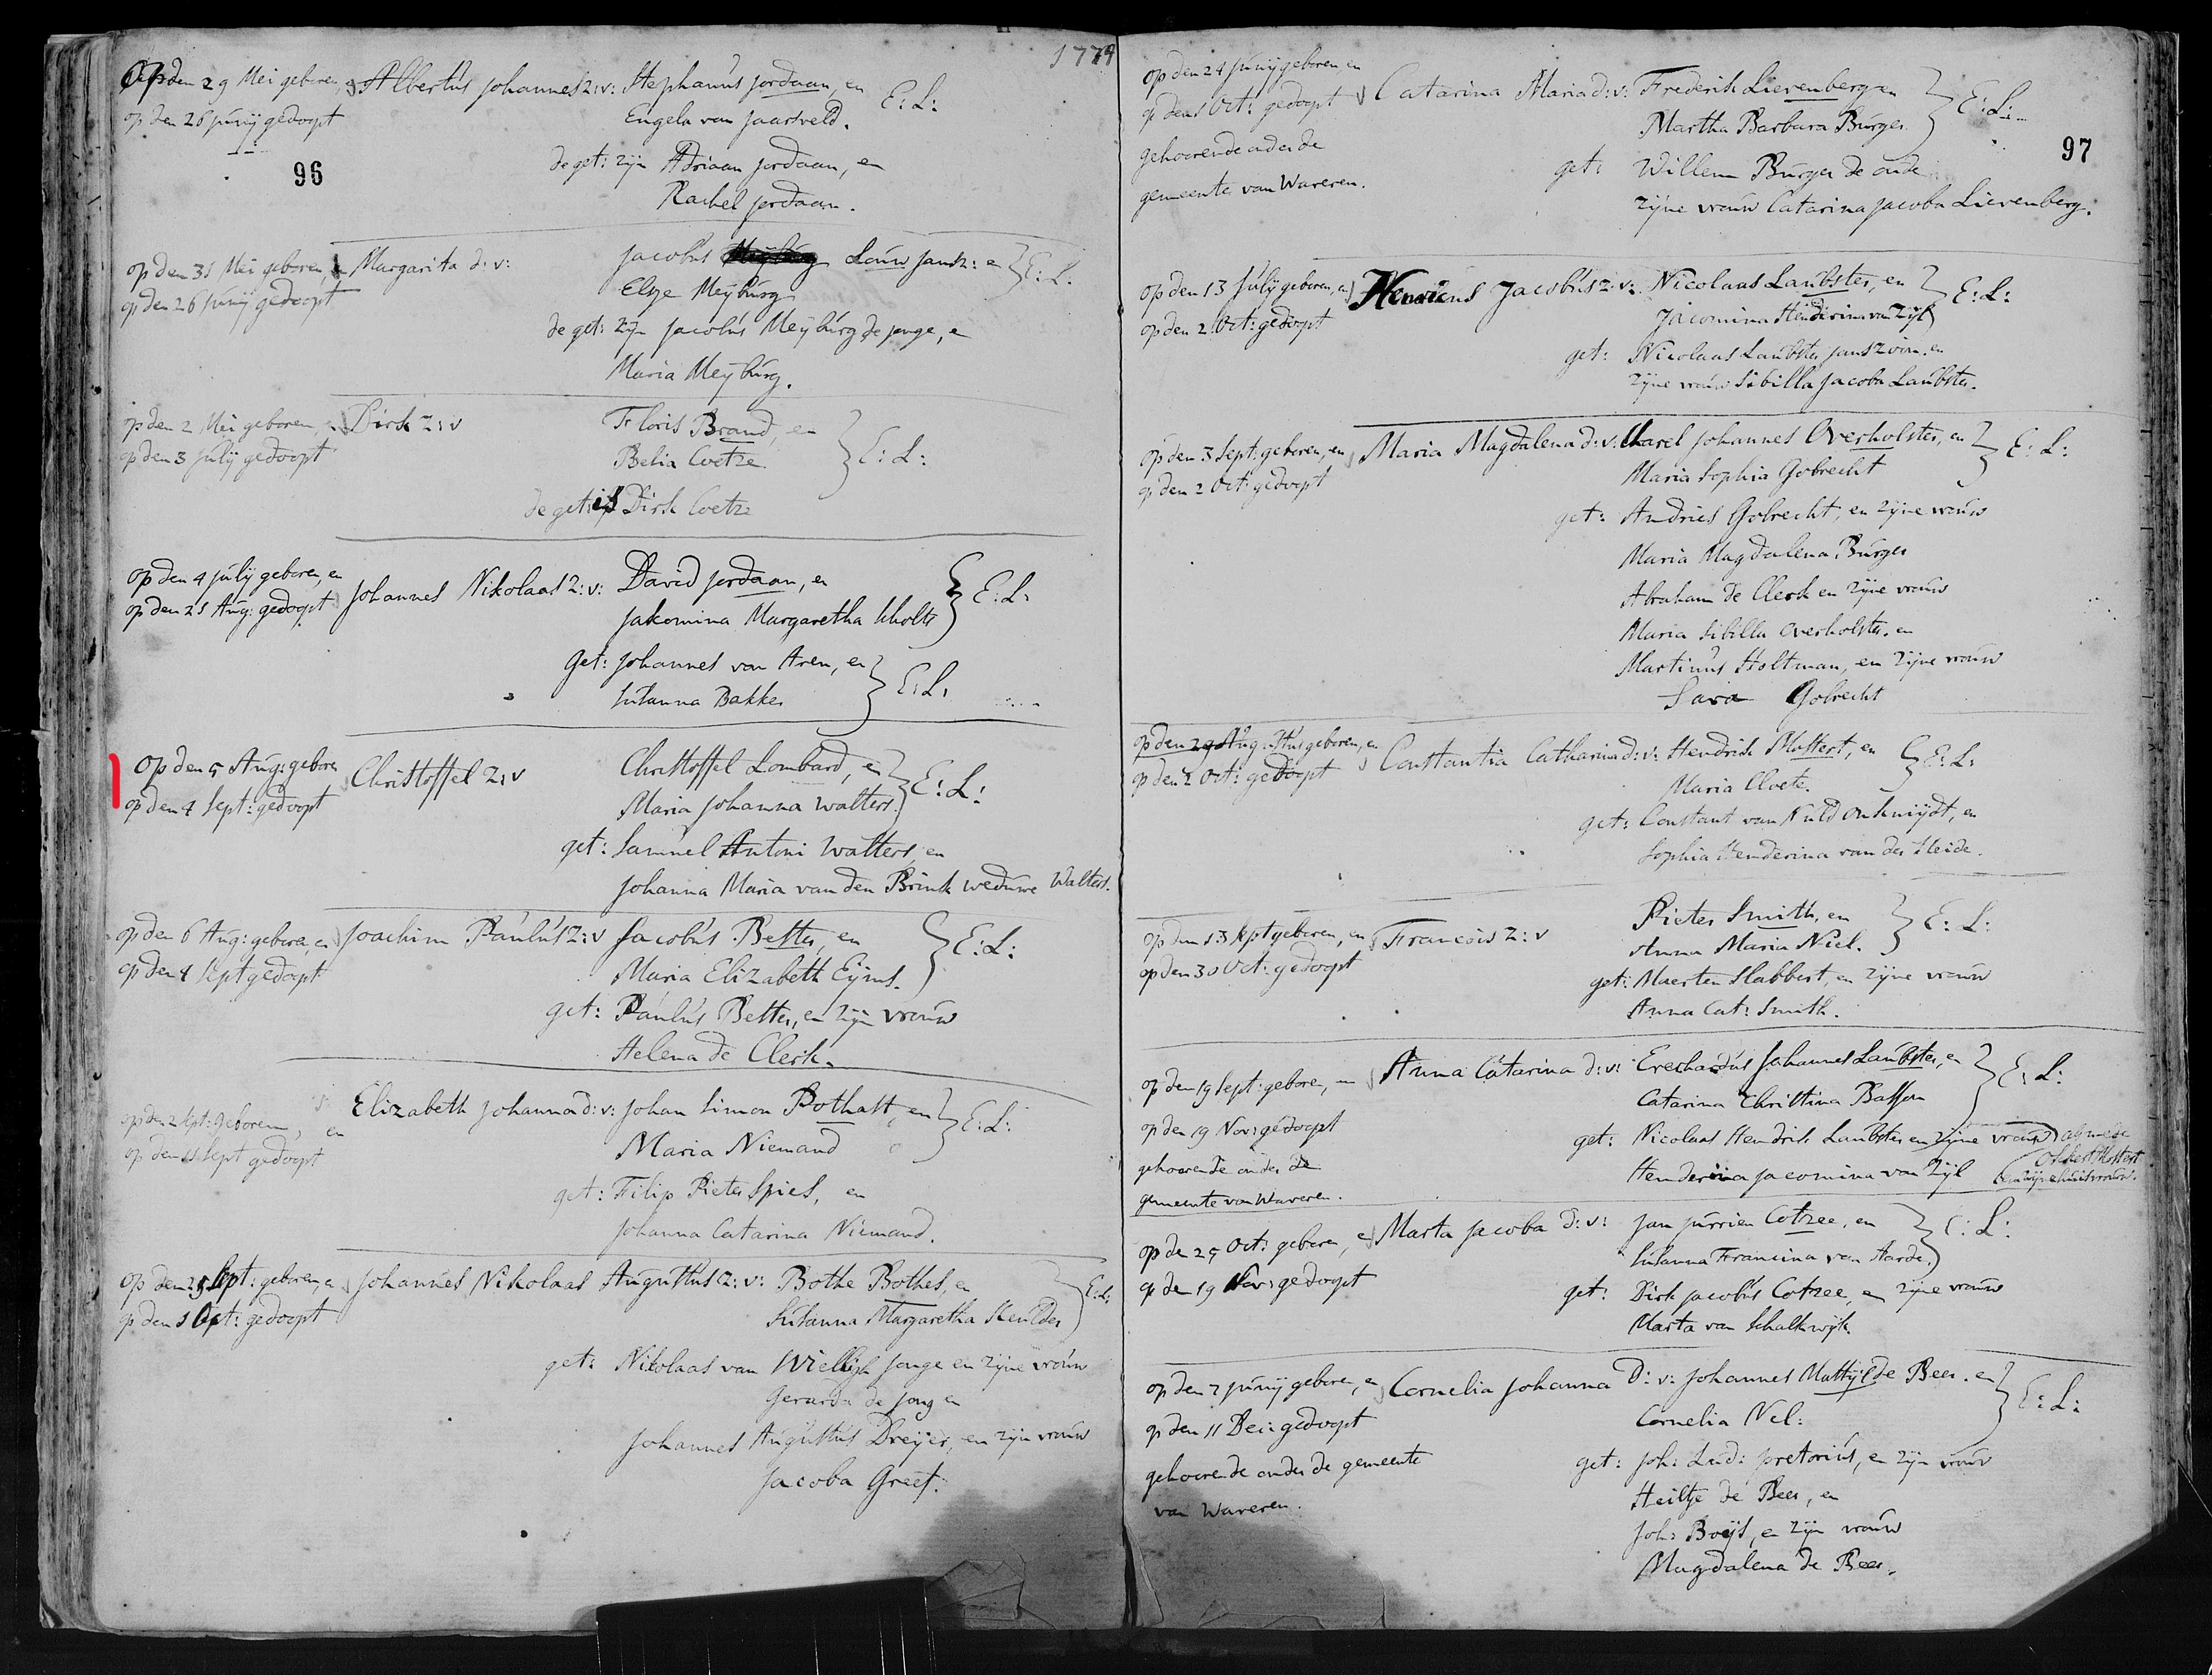 1774
Op den 29 Mei geboren, en Albertus Johannes z: v: Stephanus Jordaan, en E: L:
op den 26 Junij gedoopt Engela van Jaarsveld.
96
de get: zijn Adriaan Jordaan, en
Rachel Jordaan.
op den 31 Mei geboren, en Margarita d: v: Jacobus Louw Jansz: en E: L:
op den 26 Junij gedoopt Elsze Meijburg
de get: zijn Jacobus Meijburg de jonge, en
Maria Meijburg.
op den 2 Mei geboren, en Dirk z: v Floris Brand, en
op den 3 Julij gedoopt Belia Coetze E: L:
de get: is Dirk Coetze
op den 4 Julij geboren, en Johannes Nikolaas z: v: David Jordaan, en E: L:
op den 21 Aug: gedoopt Jakomina Margaretha Scholts
Get: Johannes van Aren, en E: L:
Susanna Bakker
Op den 5 Aug: geboren Christoffel z: v Christoffel Lombard, en E: L:
op den 4 Sept: gedoopt Maria Johanna Walters.
get: Samuel Antoni Walters, en
Johanna Maria van den Brink weduwe Walters.
op den 6 Aug: geboren, en Joachim Paulus z: v Jacobus Bester, en E: L:
op den 4 Sept gedoopt Maria Elizabeth Eijms.
get: Paulus Bester, en zijn vrouw
Helena de Clerk.
op den 2 Sept: geboren, en Elizabeth Johanna d: v: Johan Simon Pothast, en E: L:
op den 11 Sept gedoopt Maria Niemand
get: Filip Pieter Spies, en
Johanna Catarina Niemand.
Op den 25 Sept: geboren, en Johannes Nikolaas Augustus z: v: Bothe Bothes, en E: L:
op den 1 Oct: gedoopt Susanna Margaretha Keulder
get: Nikolaas van Wielligh Jonge en zijne vrouw
Gerarda de Jong en
Johannes Augustus Dreijer, en zijn vrouw
Jacoba Greef.
op den 24 Junij geboren, en Catarina Maria d: v: Frederik Lievenberg en E: L:
op den 1 Oct: gedoopt Martha Barbara Burger
97
gehoorende onder de get: Willem Burger de oude
gemeente van Waveren. zijne vrouw Catarina Jacoba Lievenberg.
op den 13 Julij geboren, en Henricus Jacobus z: v: Nicolaas Laubster, en E: L:
op den 2 Oct: gedoopt Jacomina Henderina van Zijl
get: Nicolaas Laubster Janszoon, en
zijne vrouw Sibilla Jacoba Laubster.
op den 3 Sept: geboren, en Maria Magdalena d: v: Karel Johannes Overholster, en E: L:
op den 2 Oct: gedoopt Maria Sophia Gobrecht
get: Andries Gobrecht, en zijne vrouw
Maria Magdalena Burger
Abraham de Clerk en zijne vrouw
Maria Sibilla Overholster. en
Martinus Holtman, en zijne vrouw
Sara Gobrecht
op den 29 Aug: geboren, en Constantia Catharina d: v: Hendrik Mostert, en E: L:
op den 2 Oct: gedoopt Maria Cloete.
get: Constant van Nuld Onkruijdt, en
Sophia Henderina van der Heide.
op den 13 Sept geboren, en Francois z: v Pieter Smith, en E: L:
op den 30 Oct: gedoopt Anna Maria Niel.
get: Maerten Slabbert, en zijne vrouw
Anna Cat: Smith.
op den 19 Sept: geboren, en Anna Catarina d: v: Everhardus Johannes Laubster, en E: L:
op den 19 Nov: gedoopt Catarina Christina Basson
gehoorende onder de get: Nicolaas Hendrik Laubster en zijne vrouw alsmede
gemeente van Waveren. Henderina Jacomina van Zijl Okkert Mostert
en zijne huisvrouw.
op de 25 Oct: geboren, en Marta Jacoba d: v: Jan Jurrien Cotzee, en E: L:
op den 19 Nov: gedoopt Susanna Francina van Aarde.
get: Dirk Jacobus Cotzee, en zijne vrouw
Marta van Schalkwijk.
op den 7 Junij geboren, en Cornelia Johanna D: v: Johannes Mattijs de Beer. en E: L:
op den 11 Dec: gedoopt Cornelia Nel:
gehoorende onder de gemeente get: Joh: Lud: Pretorius, en zijn vrouw
van Waveren. Heiltje de Beer, en
Joh: Boeijs, en zijn vrouw
Magdalena de Beer.